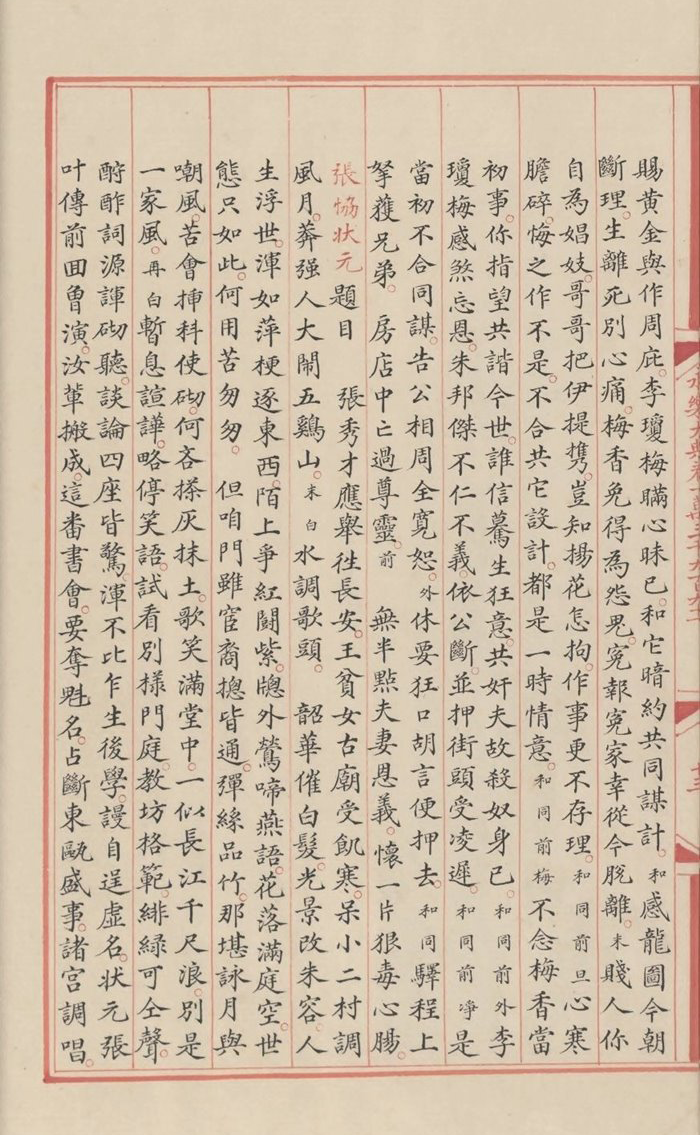 賜黃金與作周庇。李瓊梅瞞心昧已。和它暗約共同謀計。和感龍圖今朝
斷理。生離死別心痛。梅香免得為怨鬼。寃報寃家幸從今脫離。末賤人你
自為娼妓。哥哥把伊提携。豈知揚花怎拘。作事更不存理。和同前旦心寒
膽碎。悔之作不是。不合共它設計。都是一時情意。和同前梅不念梅香當
初事。你指望共諧今世。誰信驀生狂意。共奸夫故殺奴身已。和同前外李
瓊梅感煞忘恩。朱邦傑不仁不義。依公斷。並押街頭受凌遲。和同前凈是
當初不合同謀。告公相周全寬恕。外休要狂口胡言便押去。和同驛程上
拏獲兄弟。房店中亡過尊靈。前無半點夫妻恩義。懷一片狠毒心腸。
張恊状元題目 張秀才應舉徃長安。王貧女古廟受飢寒。呆小二村調
風月。莾强人大鬧五鷄山。末白水調歌頭。 韶華催白髮。光景改朱容。人
生浮世。渾如萍梗逐東西。陌上爭紅鬪紫。牕外鶯啼燕語。花落滿庭空。世
態只如此。何用苦匆匆。 但咱門雖宦裔摠皆通。彈絲品竹。那堪詠月與
嘲風。苦會揷科使砌。何吝搽灰抹土。歌笑滿堂中。一似長江千尺浪。别是
一家風。再白暫息諠譁。略停笑語。試看别様門庭。教坊格範。緋綠可仝聲。
酧酢詞源諢砌聽。談論四座皆驚。渾不比乍生後學。謾自逞虛名。状元張
叶傳前囬曾演。汝輩搬成。這畨書會。要奪魁名。占斷東甌盛事。諸宮調唱。